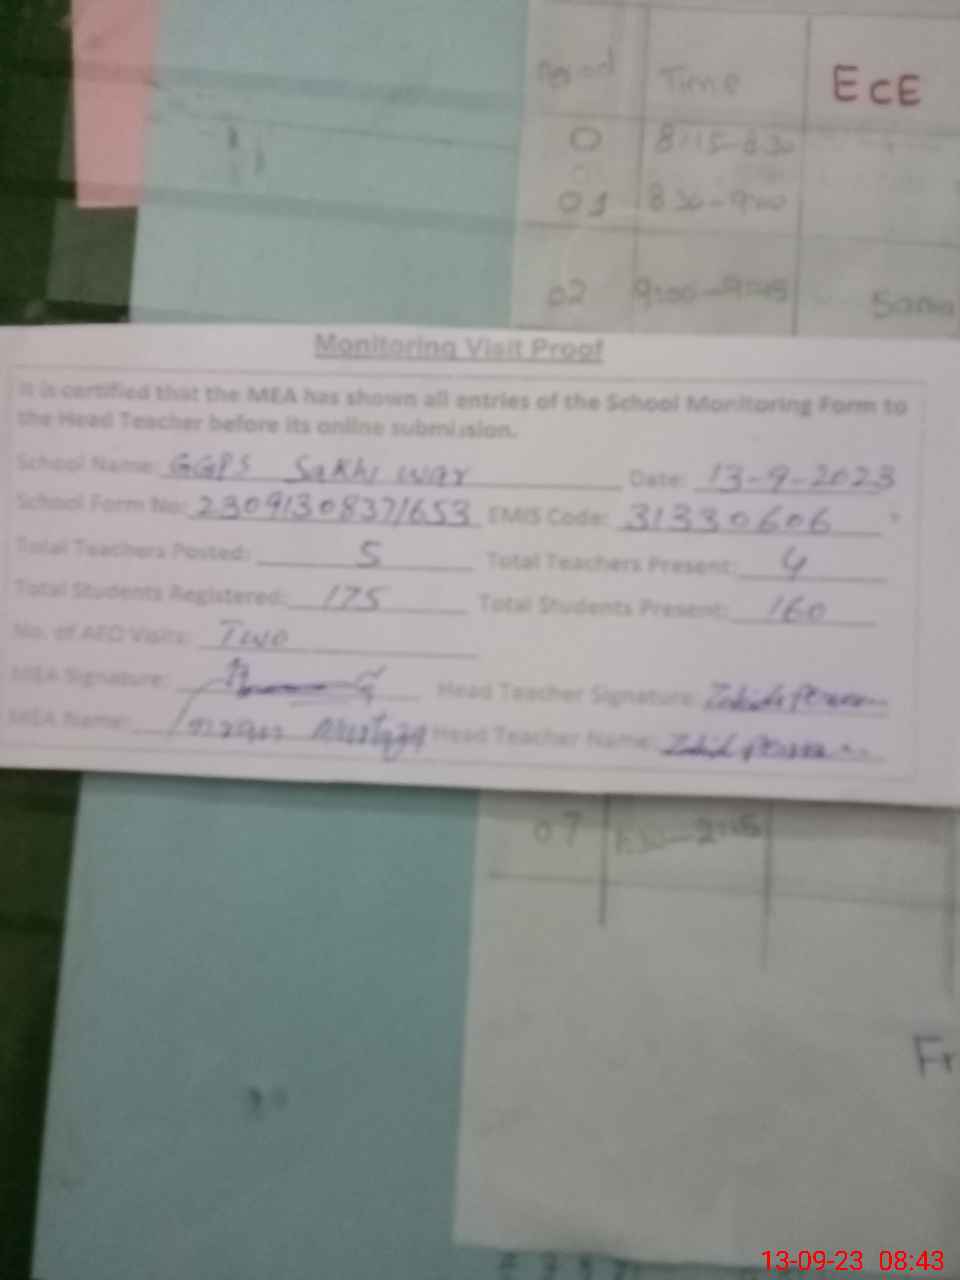 Period Time ECE
0 8:15-8:30
01 8:30-9:00
02 9:00-9:45
Monitoring Visit Proof
It is certified that the MEA has shown all entries of the School Monitoring Form to
the Head Teacher before its online submission.
School Name: GGPS Sakhi war Date: 13-9-2023
School Form No: 23091308371653 EMIS Code: 31330606
Total Teachers Posted: 5 Total Teachers Present: 4
Total Students Registered: 175 Total Students Present: 160
No. of AEO Visits: Two
MEA Signature: Head Teacher Signature:
MEA Name: Head Teacher Name:
07
Fr
13-09-23 08:43